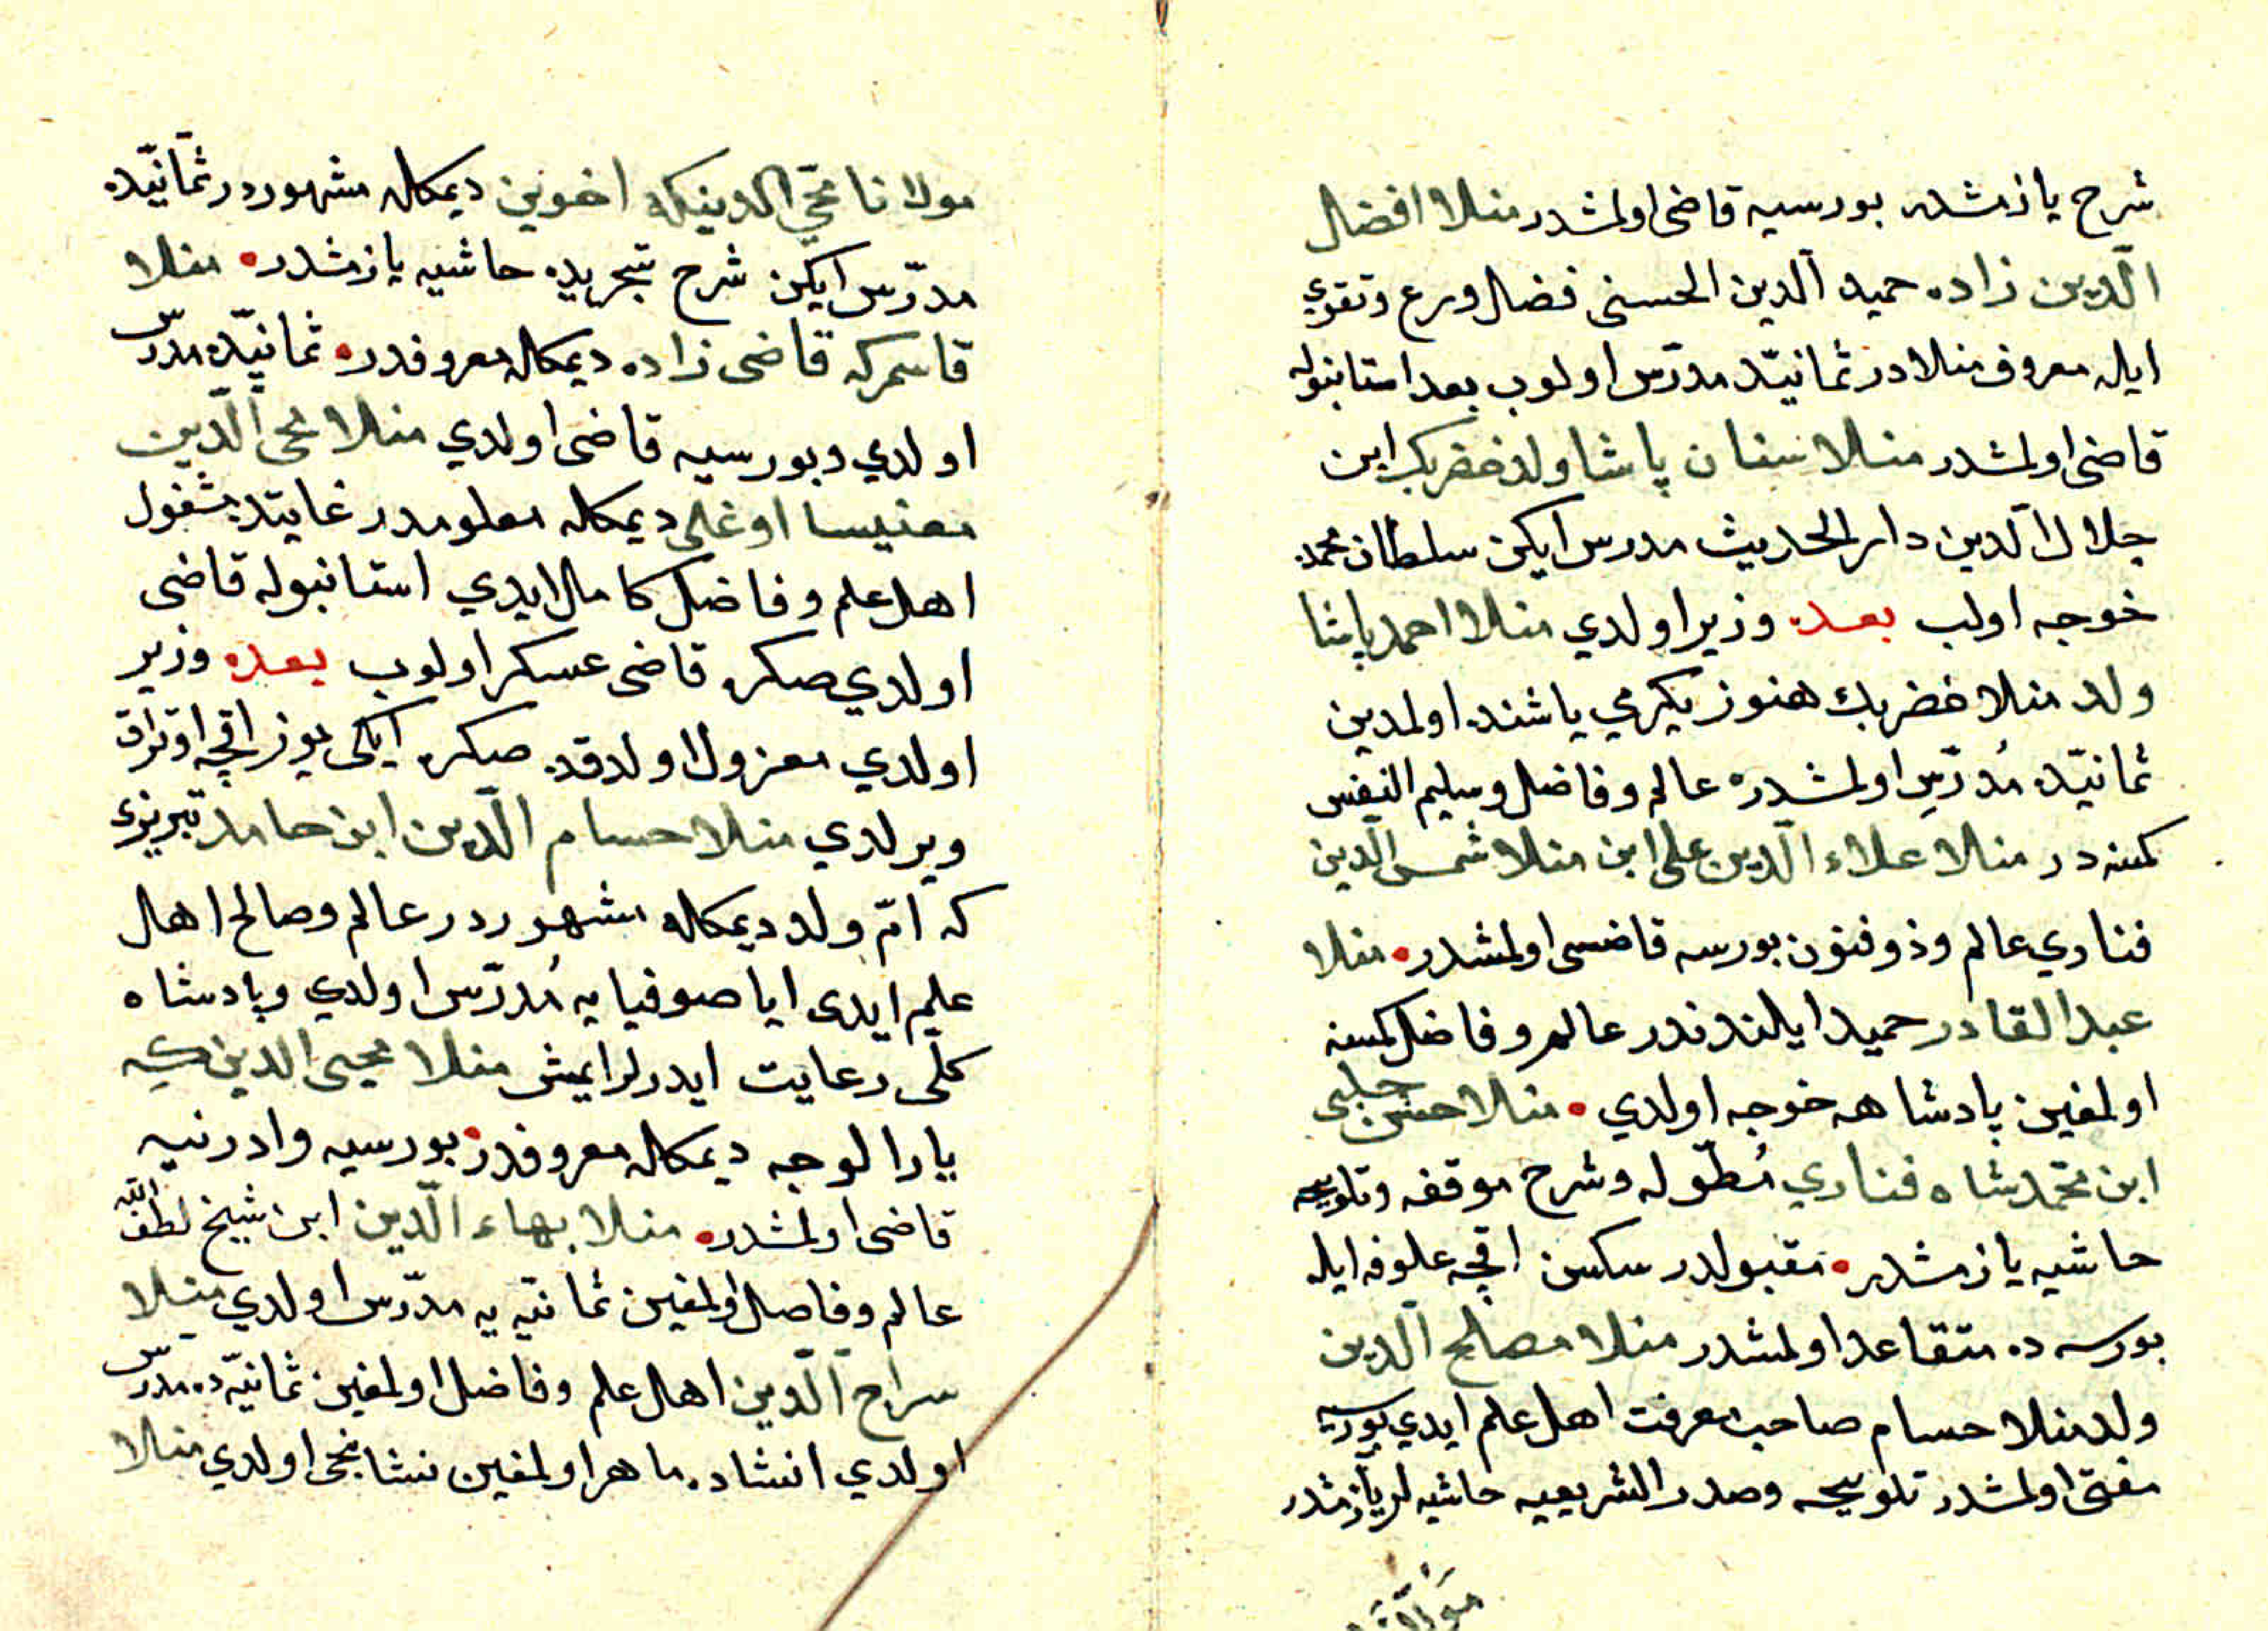 شرح يازمشدر بورسيه قاضى اولمشدر منلا افضل
الدّين زاده حميد الدين الحسنى فضل وورع وتقوي
ايله معروف منلادر ثمانيّه ده مدرّس اولوب بعده استانبوله
قاضى اولمشدر منلا سنان پاشا ولد خضر بك ابن
جلال الدين دار الحديث مدرس ايكن سلطان محمده
خوجه اولب بعده وزير اولدي منلا احمد پاشا
ولد منلا خضر بك هنوز يكرمي ياشنده اولمدين
ثمانيّده مُدرّس اولمشدره عالم وفاضل وسليم النفس
كمسنه در منلا علاء الدين على ابن منلا شمس الدين
فناري عالم وذو فنون بورسه قاضسى اولمشدر۰ منلا
عبد القادر حميد ايلندندر عالم وفاضل كمسنه
اولمغين پادشاهه خوجه اولدي ۰ منلا حسن چلبى
ابن محمّد شاه فناري مُطوّله وشرح موقفه وتلويحه
حاشيه يازمشدر۰ مقبولدر سكسن اقچه علوفه ايله
بورسه ده متقاعد اولمشدر منلا مصلح الدين
ولد منلا حسام صاحب معرفت اهل علم ايدي بورسيه
مفتى اولمشدر تلويحه وصدر الشريعيه حاشيه لر يازمشدر
مولانا
مولانا محيّ الدينكه اخوين ديمكله مشهوردر ثمانيّده
مدرّس ايكن شرح تجريده حاشيه يازمشدر۰ منلا
قاسم كه قاضى زاده ديمكله معروفدر۰ ثمانيّه ده مدرّس
اولدي وبورسيه قاضى اولدي منلا محى الدّين
مغنيسا اوغلى ديمكله معلومدر غايتده مشغول
اهل علم وفاضل كامل ايدي استانبوله قاضى
اولدي صكره قاضى عسكر اولوب بعده وزير
اولدي معزول اولدقده صكره ايكى يوز اقچه اوتراق
ويرلدي منلا حسام الدّين ابن حامد تبريزى
كه امّ ولد ديمكله مشهوردر عالم وصالح اهل
علم ايدى اياصوفيايه مُدرّس اولدي وپادشاه
كلّى رعايت ايدرلرايمش منلا محيى الدين كه
يارالوجه ديمكله معروفدر۰ بورسيه وادرنيه
قاضى اولمشدر۰ منلا بهاء الدّين ابن شيخ لطف الله
عالم وفاصل اولمغين ثمانيّه يه مدرّس اولدي منلا
سراج الدّين اهل علم وفاضل اولمغين ثمانيّه ده مدرّس
اولدي انشاده ماهر اولمغين نشانجى اولدي منلا